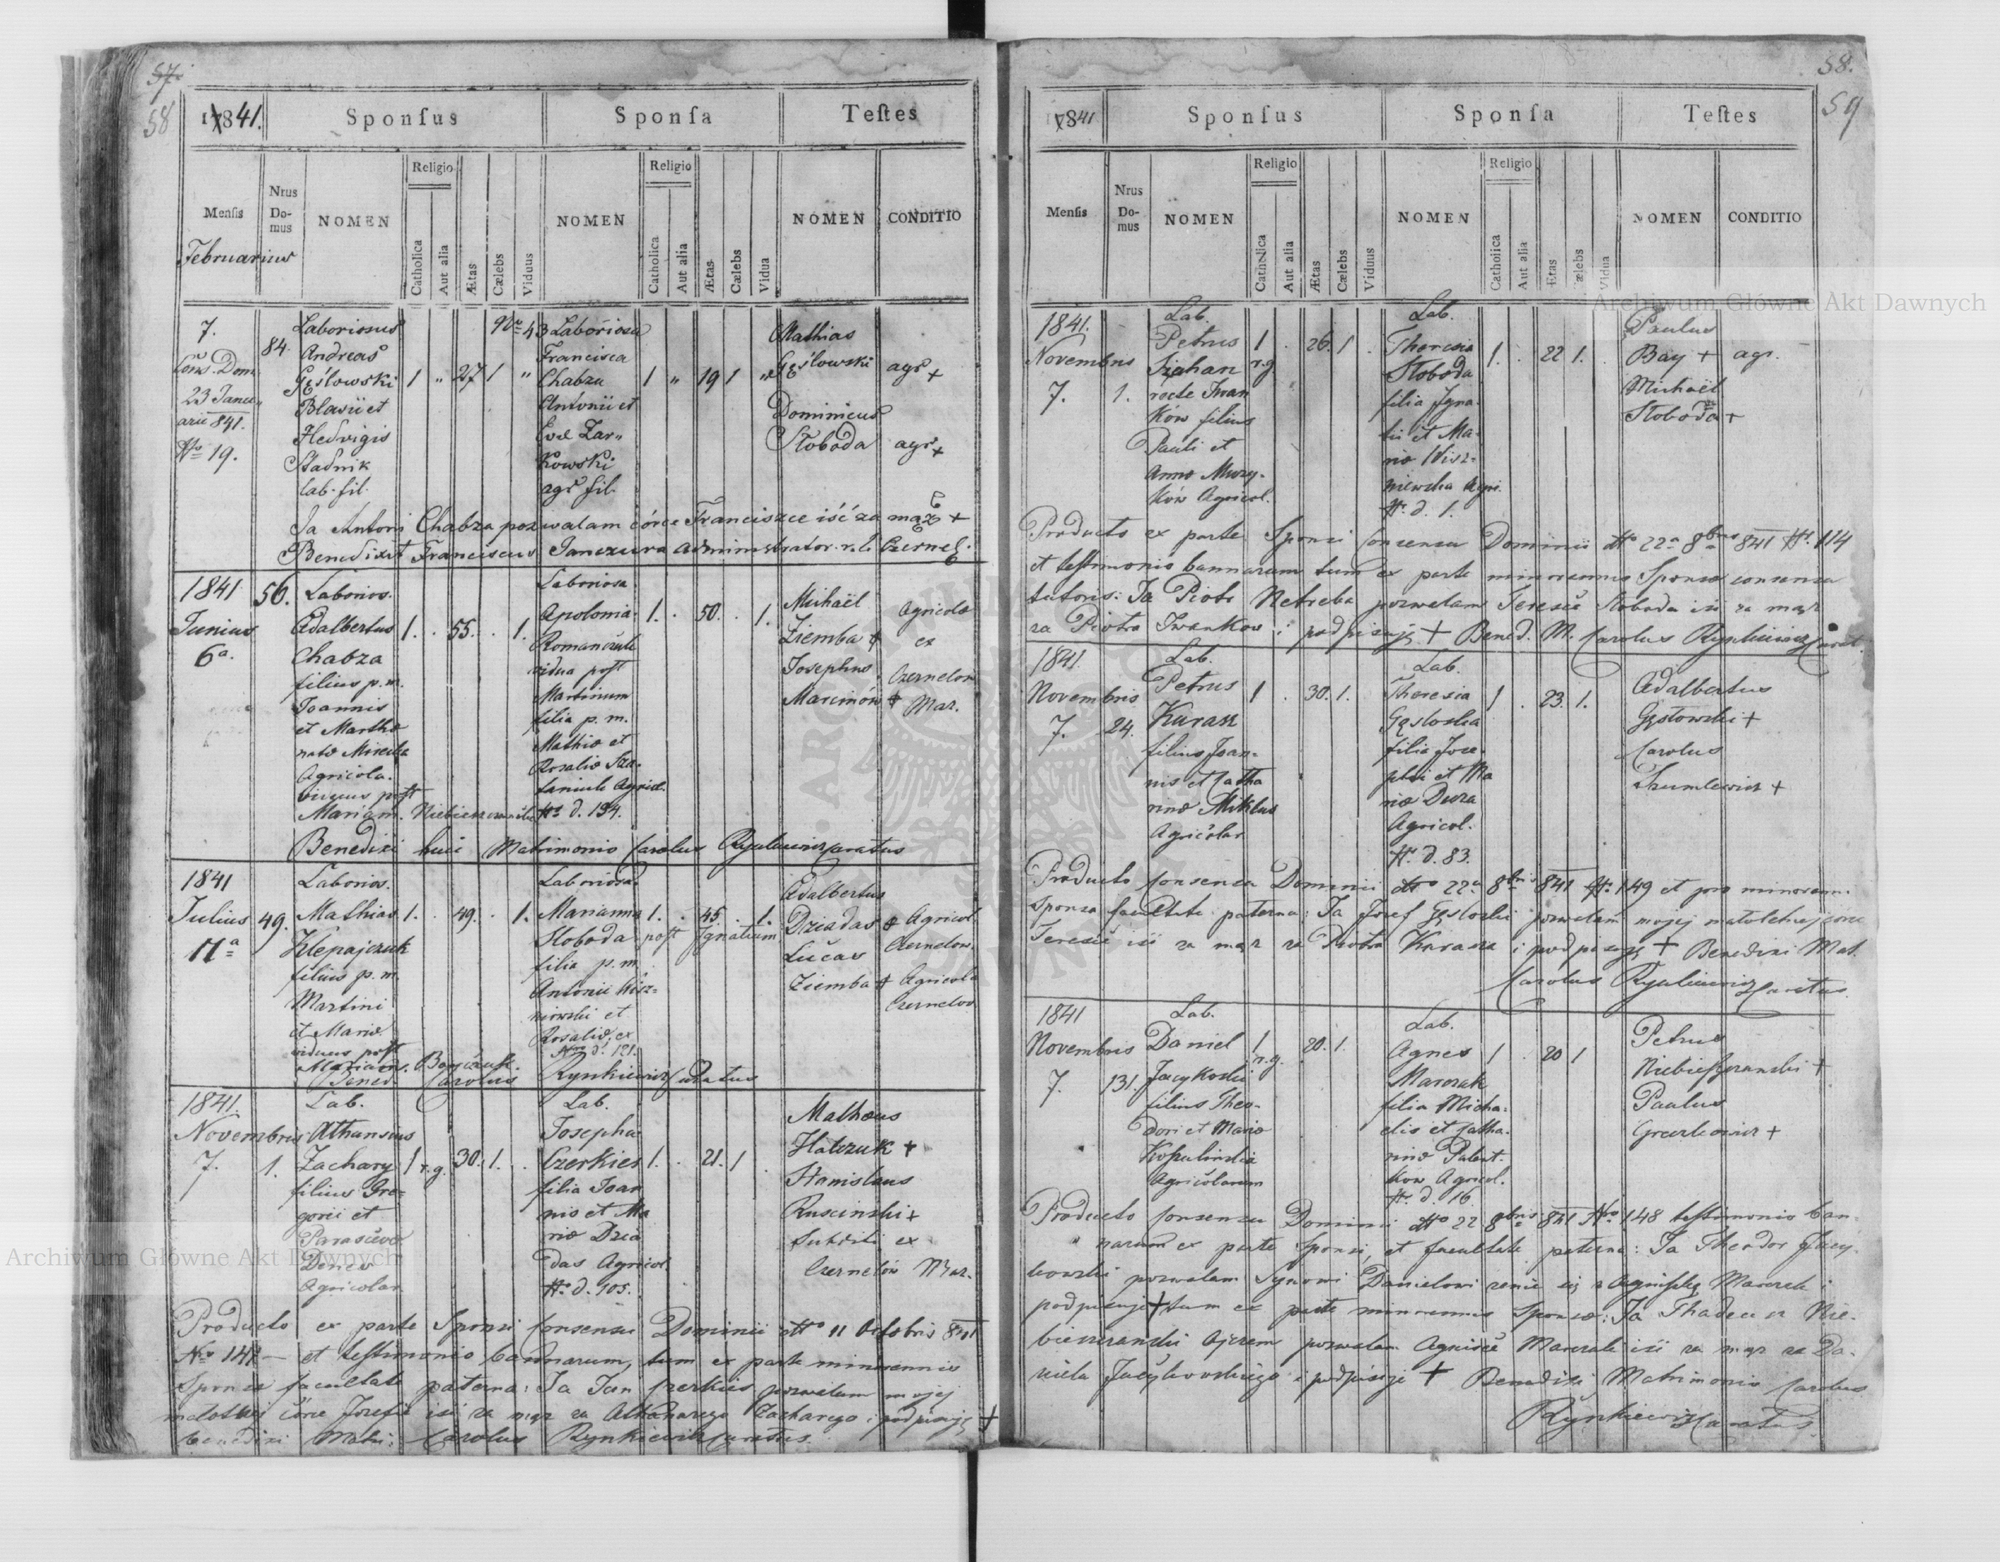 57.
58
1841.
Sponsus
Sponsa
Testes
Mensis
Nrus Do-mus
NOMEN
Religio
Catholica
Aut alia
Ætas
Cælebs
Viduus
NOMEN
Religio
Catholica
Aut alia
Ætas
Cælebs
Vidua
NOMEN
CONDITIO
Februarius
7.
Cons. Dom.
23 Janu-
arii 841.
Nro 19.
84.
Laboriosus
Andreas
Gęślowski
Blasii et
Hedvigis
Stadnik
lab. fil.
1 " 27 1 "
Nro 43 Laboriosa
Francisca
Chabza
Antonii et
Evæ Zar-
kowski
agr. fil.
1 " 19 1 "
Mathias
Gęślowski agr. +
Dominicus
Słoboda agr. +
Ja Antoni Chabza pozwalam córce Franciszce iść za mąż +
Benedixit Franciscus Janczura Administrator r. l. Czernel.
1841
Junius
6a.
56.
Laborios.
Adalbertus
Chabza
filius p. m.
Joannis
et Marthæ
natæ
Agricola.
viduus post
Mariam.
1. . 55. . 1.
Laboriosa
Apolonia
vidua post
Martinum
filia p. m.
Mathiæ et
Rosaliæ
Agricol.
Nr. d. 194.
1. . 50. . 1.
Michaël
Ziemba +
Josephus
Marcinów +
Agricolæ
ex
Czernelow
Maz.
Benedixi huic Matrimonio Carolus Rynkiewicz Curatus
1841
Julius
11a
49.
Laborios.
Mathias
Klepajczuk
filius p. m.
Martini
et Mariæ
viduus post
Mariam.
1. . 49. . 1.
Laboriosa
Marianna
Słoboda post Ignatium
filia p. m.
Antonii Wisz-
niowski et
Rosaliæ, ex
Nro d. 121.
1. . 45. . 1.
Adalbertus
Dziadas +
Lucas
Ziemba +
Agricol.
Czernelow.
Agricola
Czernelow
Bened. Carolus Rynkiewicz Curatus
1841.
Novembris
7.
1.
Lab.
Athanasius
Zachary
filius Gre-
gorii et
Parascevæ
Agricolar.
1 r. g. 30. 1. .
Lab.
Josepha
Czerkies
filia Joan
nis et Ma
riæ Dzia
das Agricol.
Nr. d. 105.
1. . 21. 1 .
Matheus
Hatczuk +
Stanislaus
Ruscinski +
Subditi ex
Czernelów Maz.
Producto ex parte Sponsi Consensu Dominii dto 11 Octobris 841
Nro 141 — et testimonio bannorum, tum ex parte minorennis
Sponsæ facultate paterna: Ja Jan Czerkies pozwalam mojej
małoletniej córce Jozefie iść za mąż za Athanazego Zacharego i podpisuję +
Benedixi Matri: Carolus Rynkiewicz Curatus.
58.
59
1841
Sponsus
Sponsa
Testes
Mensis
Nrus Do-mus
NOMEN
Religio
Catholica
Aut alia
Ætas
Cælebs
Viduus
NOMEN
Religio
Catholica
Aut alia
Ætas
Cælebs
Vidua
NOMEN
CONDITIO
1841.
Novembris
7.
1.
Lab.
Petrus
recte Iwan
ków filius
Pauli et
Annæ Muzy-
ków Agricol.
1 r. g. . 26. 1 .
Lab.
Theresia
Słoboda
filia Igna-
tii et Ma-
riæ Wisz-
niewska Agri.
Nr. d. 1.
1. . 22 1.
Paulus
Bay + agr.
Michaël
Słoboda +
Producto ex parte Sponsi Consensu Dominii dto 22a 8bris 841 Nr. 114
et testimonio bannorum tum ex parte minorennis Sponsæ consensu
tutoris: Ja Piotr Netreba pozwalam Teresie Słoboda iść za mąż
za Piotra Iwankow i podpisuję + Bened. M. Carolus Rynkiewicz Curat.
1841.
Novembris
7.
24.
Lab.
Petrus
Karasz
filius Joan-
nis et Catha
rinæ Miklus
Agricolar
1 . 30. 1.
Lab.
Theresia
Gęsloska
filia Jose-
phi et Ma
riæ Duza
Agricol.
Nr. d. 83.
1 . 23. 1.
Adalbertus
Gęstowski +
Carolus
+
Producto Consensu Dominii dto 22a 8bris 841 Nr. 149 et pro minorenn.
Sponsa facultate paterna: Ja Jozef Gęsloski pozwalam mojej małoletniej córce
Teresie iść za mąż za Piotra Karasza i podpisuję + Benedixi Mat.
Carolus Rynkiewicz Curatus.
1841
Novembris
7.
131.
Lab.
Daniel
Jacykoski
filius Theo-
dori et Mariæ
Agricolarum
1 r. g. . 20. 1.
Lab.
Agnes
Marszak
filia Micha-
elis et Catha-
rinæ
kow Agricol.
Nr. d. 16.
1 . 20 1
Petrus
Niebieszczanski +
Paulus
+
Producto Consensu Dominii dto 22 8bris 841 Nro 148 testimonio ban-
norum ex parte Sponsi, et facultate paterna: Ja Theodor Jacy-
kowski pozwalam Synowi Danielowi żenić się z Agnieszką Marszak i
podpisuję + tum ex parte minorennis Sponsæ: Ja Thadeusz Nie-
bieszczanski Ojczem pozwalam Agnisce Marszak iść za mąż za Da-
niela Jacykowskiego i podpisuję + Benedixi Matrimonio Carolus
Rynkiewicz Curatus.
Archiwum Główne Akt Dawnych
Archiwum Główne Akt Dawnych